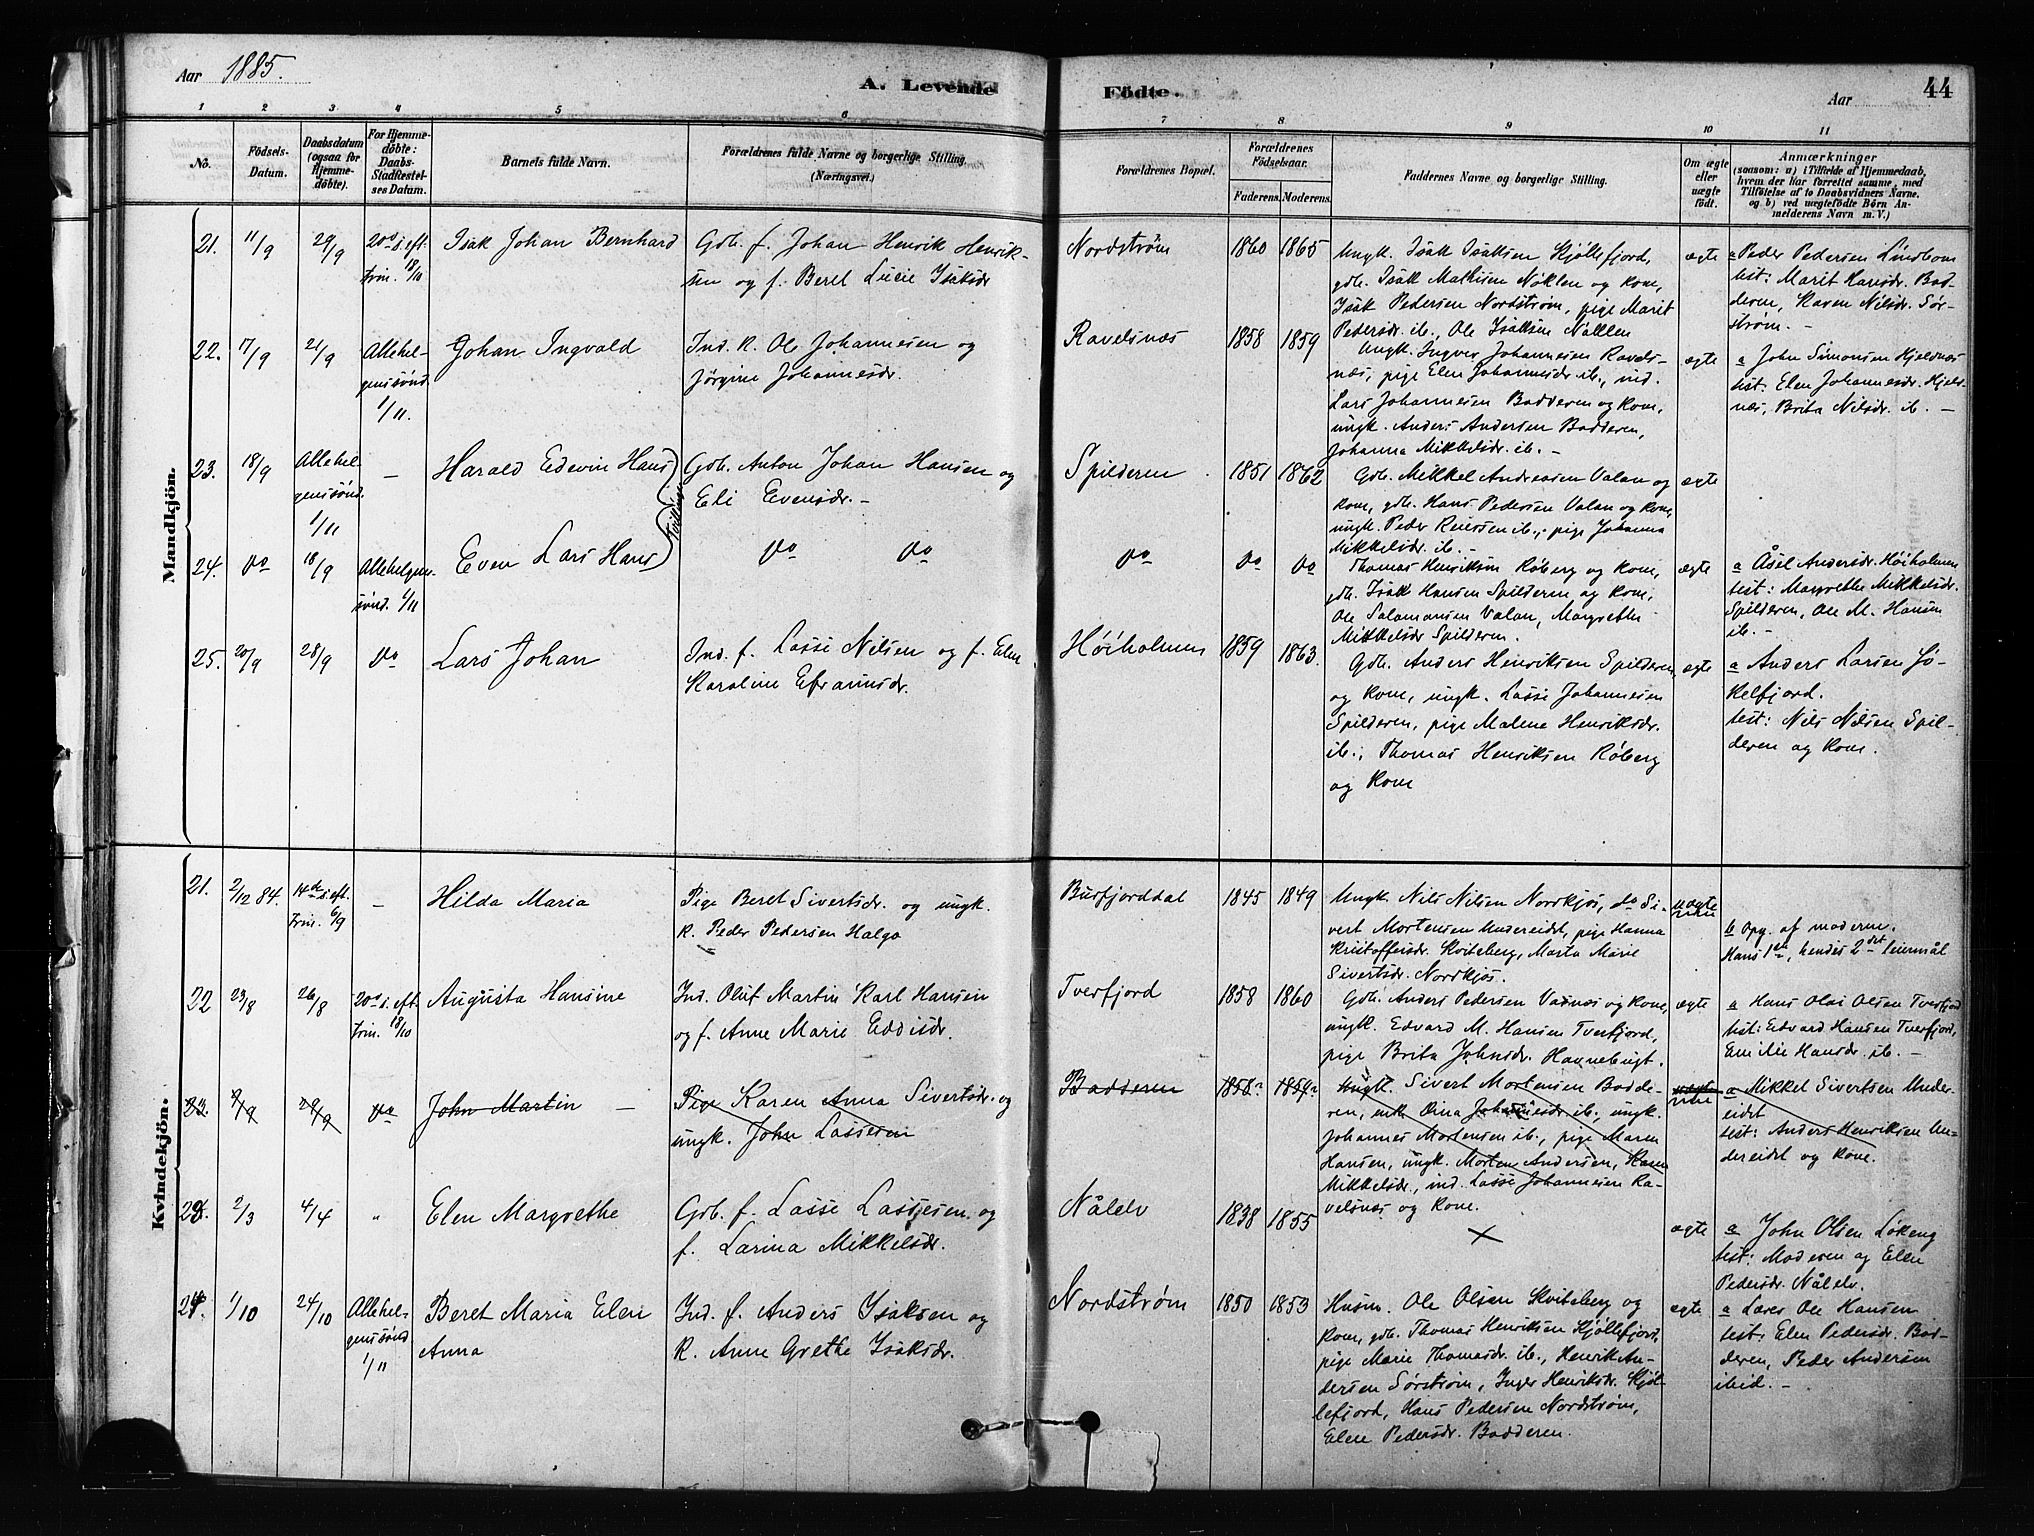 Aar 1885.
A. Levende Födte.
Aar
44
1 2 3 4 5 6 7 8 9 10 11
No.
Födsels-Datum.
Daabsdatum (ogsaa for Hjemme-döbte).
For Hjemme-döbte: Daabs-Stadfæstel-ses Datum.
Barnets fulde Navn.
Forældrenes fulde Navne og borgerlige Stilling
(Næringsvei.)
Forældrenes Bopæl.
Forældrenes Födselsaar.
Faderens. Moderens.
Faddernes Navne og borgerlige Stilling.
Om ægte eller uægte födt.
Anmærkninger
(saasom: a) i Tilfælde af Hjemmedaab, hvem der har forrettet samme, med Tilföielse af to Daabsvidners Navne. og b) ved uægtefödte Börn An-melderens Navn m. V.)
Mandkjön.
21. 11/9 29/9 20de s. eft. Trin. 18/10 Isak Johan Bernhard
Gdb. f. Johan Henrik Henrik-
sen og f. Beret Lucie Isaksdr
Nordstrøm 1860 1865
Ungk. Isak Isaksen Kjøllefjord,
gdb. Isak Mathisen Nøklen og kone,
Isak Pedersen Nordstrøm, pige Marit
Pedersdr. ib., Ole Isaksen
ægte
a Peder Pedersen Lindbom
test: Marit Hansdr. Bad-
deren, Karen Nilsdr. Sør-
strøm. -
22. 17/9 21/9 Allehel-
genssønd. 1/11. Johan Ingvald
Ind. K. Ole Johannesen og
Jørgine Johannesdr.
Ravelsnæs 1858 1859
Ungk. Ingver Johannesen Ravels-
næs, pige Elen Johannesdr. ib., ind.
Lars Johannesen Badderen og kone,
ungk. Anders Andersen Badderen,
Johanna Mikkelsdr. ib. -
ægte
a John Simonsen Kjelsnæs
test: Elen Johannesdr. Kjels-
næs, Brita Nilsdr. ib. -
23. 18/9 Allehel-
genssønd. 1/11 - Harald Edevin Hans
Tvillinger
Gdb. Anton Johan Hansen og
Eli Evensdr. -
Spilderen 1851 1862
Gdb. Mikkel Andreasen Valan og
kone, gdb. Hans Pedersen Valan og kone,
ungk. Peder Reiersen ib., pige Johanna
Mikkelsdr. ib. -
ægte
24. do 18/9 Allehelgens-
sønd. 1/11 Even Lars Hans
do do
do do do
Thomas Henriksen Røberg og kone,
gdb. Isak Hansen Spilderen og kone,
Ole Salamonsen Valan, Margrethe
Mikkelsdr Spilderen.
ægte
a Åsel Andersdr. Høiholmen
test: Margrethe Mikkelsdr.
Spilderen, Ole M. Hansen
ib. -
25. 20/9 28/9 do Lars Johan
Ind. f. Lasse Nilsen og f. Elen
Karoline Efraimsdr.
Høiholmen 1859 1863.
Gdb. Anders Henriksen Spilderen
og kone, ungk. Lasse Johannesen
Spilderen, pige Malene Henriksdr.
ib., Thomas Henriksen Røberg
og kone
ægte
a Anders Larsen Jø-
kelfjord.
test: Nils Nilsen Spil-
deren og kone.
Kvindekjön.
21. 2/12 84. 14de s. eft. Trin. 6/9 - Hilda Maria
Pige Beret Sivertsdr. og ungk.
K. Peder Pedersen Halgo
Burfjorddal 1845 1849
Ungk. Nils Nilsen Nordkjos, do Si-
vert Mortensen Undereidet, pige Hanna
Kristoffersdr. Kviteberg, Marta Marie
Sivertsdr. Nordkjos.
uægte
b Opg. af moderen.
Hans 1ste, hendes 2det leiermål
22 23/8 26/8 20de s. eft. Trin. 18/10 Augusta Hansine
Ind. Oluf Martin Karl Hansen
og f. Anne Marie Eddisdr.
Tverfjord 1858 1860
Gdb. Anders Pedersen Vasnæs og kone,
ungk. Edvard M. Hansen Tverfjord,
pige Brita Johnsdr. Havnebugt.
ægte
a Hans Olai Olsen Tverfjord
test: Edvard Hansen Tverfjord,
Emilie Hansdr. ib. -
23. 29/9 do John Martin -
Pige Karen Anna Sivertsdr. og
ungk. John Lassesen
Badderen 1858 1859
ungk. Sivert Mortensen Badde-
ren, enke Dina Johannesdr ib., ungk.
Johannes Mortensen ib., pige Maren
Hansen, ungk. Morten Andersen, Karen
Mikkelsdr., ind. Lasse Johannesen Ra-
velsnæs og kone.
uægte
a Mikkel Sivertsen Under-
eidet
test: Anders Henriksen Un-
dereidet og kone.
23. 2/3 4/4 " Elen Margrethe
Gdb. f. Lasse Lassesen og
f. Larina Mikkelsdr.
Nålelv 1838 1855
×
ægte
a John Olsen Løkeng
test: Moderen og Elen
Pedersdr. Nålelv.
24. 1/10 24/10 Allehel-
genssønd 1/11 Beret Maria Elen
Anna
Ind. f. Anders Isaksen og
K. Anne Grethe Isaksdr.
Nordstrøm 1850 1853
Husm. Ole Olsen Kviteberg og
kone, gdb. Thomas Henriksen Kjøllefjord,
pige Marie Thomasdr. ib., Henrik An-
dersen Sørstrøm, Inger Henriksdr. Kjøl-
lefjord, Hans Pedersen Nordstrøm,
Elen Pedersdr. Badderen.
ægte
a Lærer Ole Hansen
test: Elen Pedersdr. Bad-
deren, Peder Andersen
ibid. -